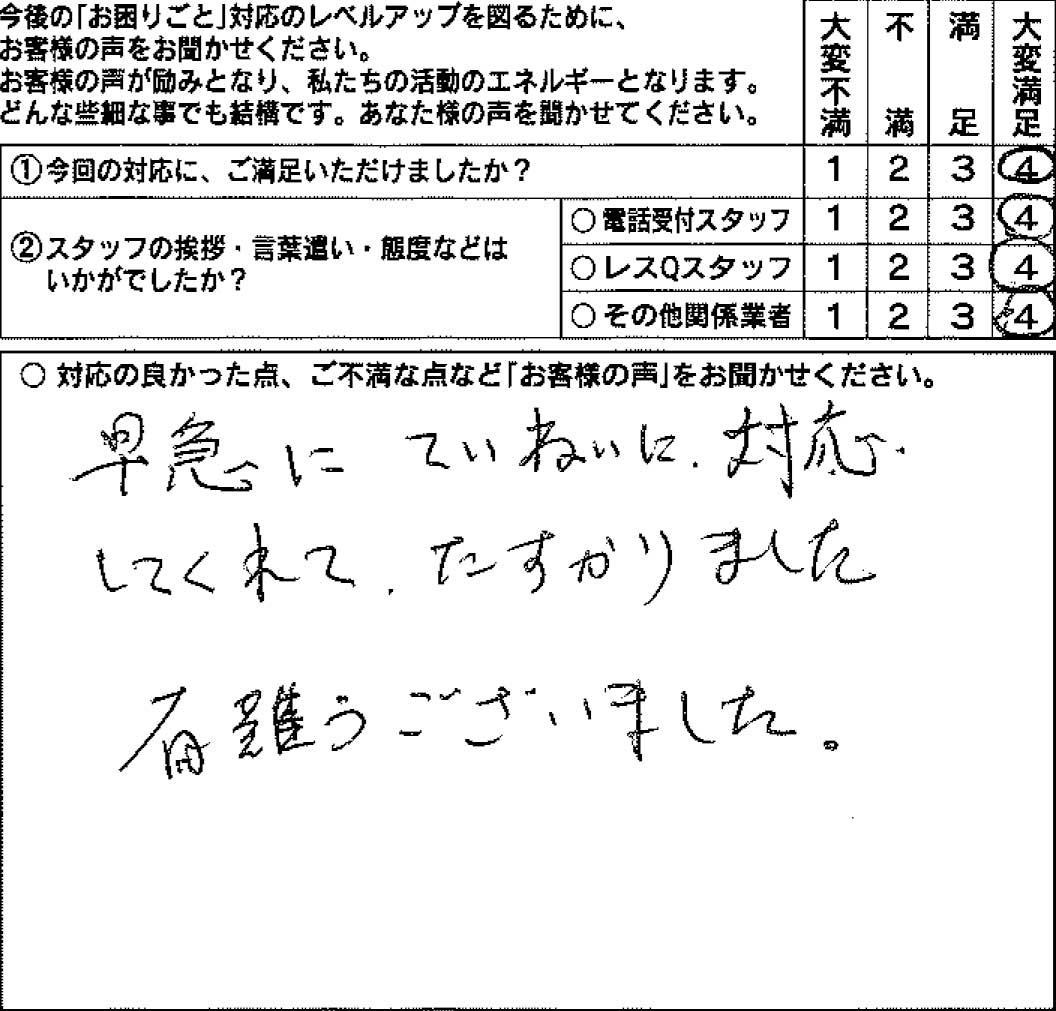 今後の「お困りごと」対応のレベルアップを図るために、
お客様の声をお聞かせください。
お客様の声が励みとなり、私たちの活動のエネルギーとなります。
どんな些細な事でも結構です。あなた様の声を聞かせてください。
大変不満 不満 満足 大変満足
①今回の対応に、ご満足いただけましたか？ 1 2 3 4
②スタッフの挨拶・言葉遣い・態度などは
いかがでしたか？
○電話受付スタッフ 1 2 3 4
○レスQスタッフ 1 2 3 4
○その他関係業者 1 2 3 4
○ 対応の良かった点、ご不満な点など「お客様の声」をお聞かせください。
早急に ていねいに、対応
してくれて、たすかりました
有難うございました。